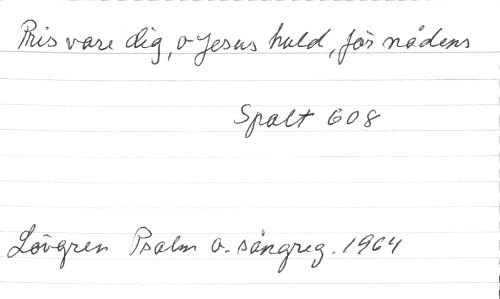 Pris vare dig, o Jesus huld, för nådens
Spalt 608
Lövgren Psalm o. sångreg. 1964